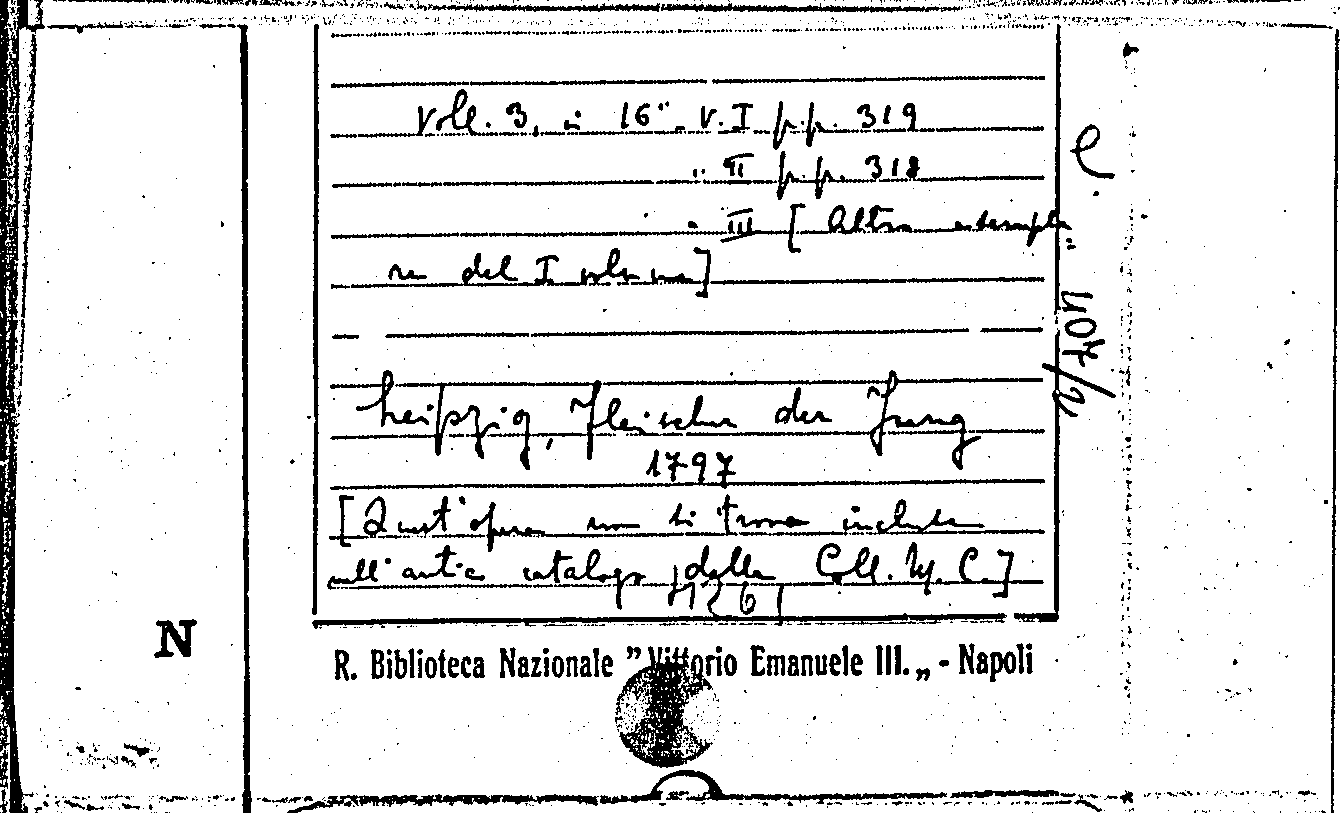 Voll. 3, in 16° - v. I pp. 319
" II pp. 318
" III [Altro esempla
re del I volume]
Leipzig, Fleischer der Jung
1797
[Quest'opera non si trova inclusa
nell'antico catalogo della Coll. M. C.]
N
R. Biblioteca Nazionale "Vittorio Emanuele III.„ - Napoli